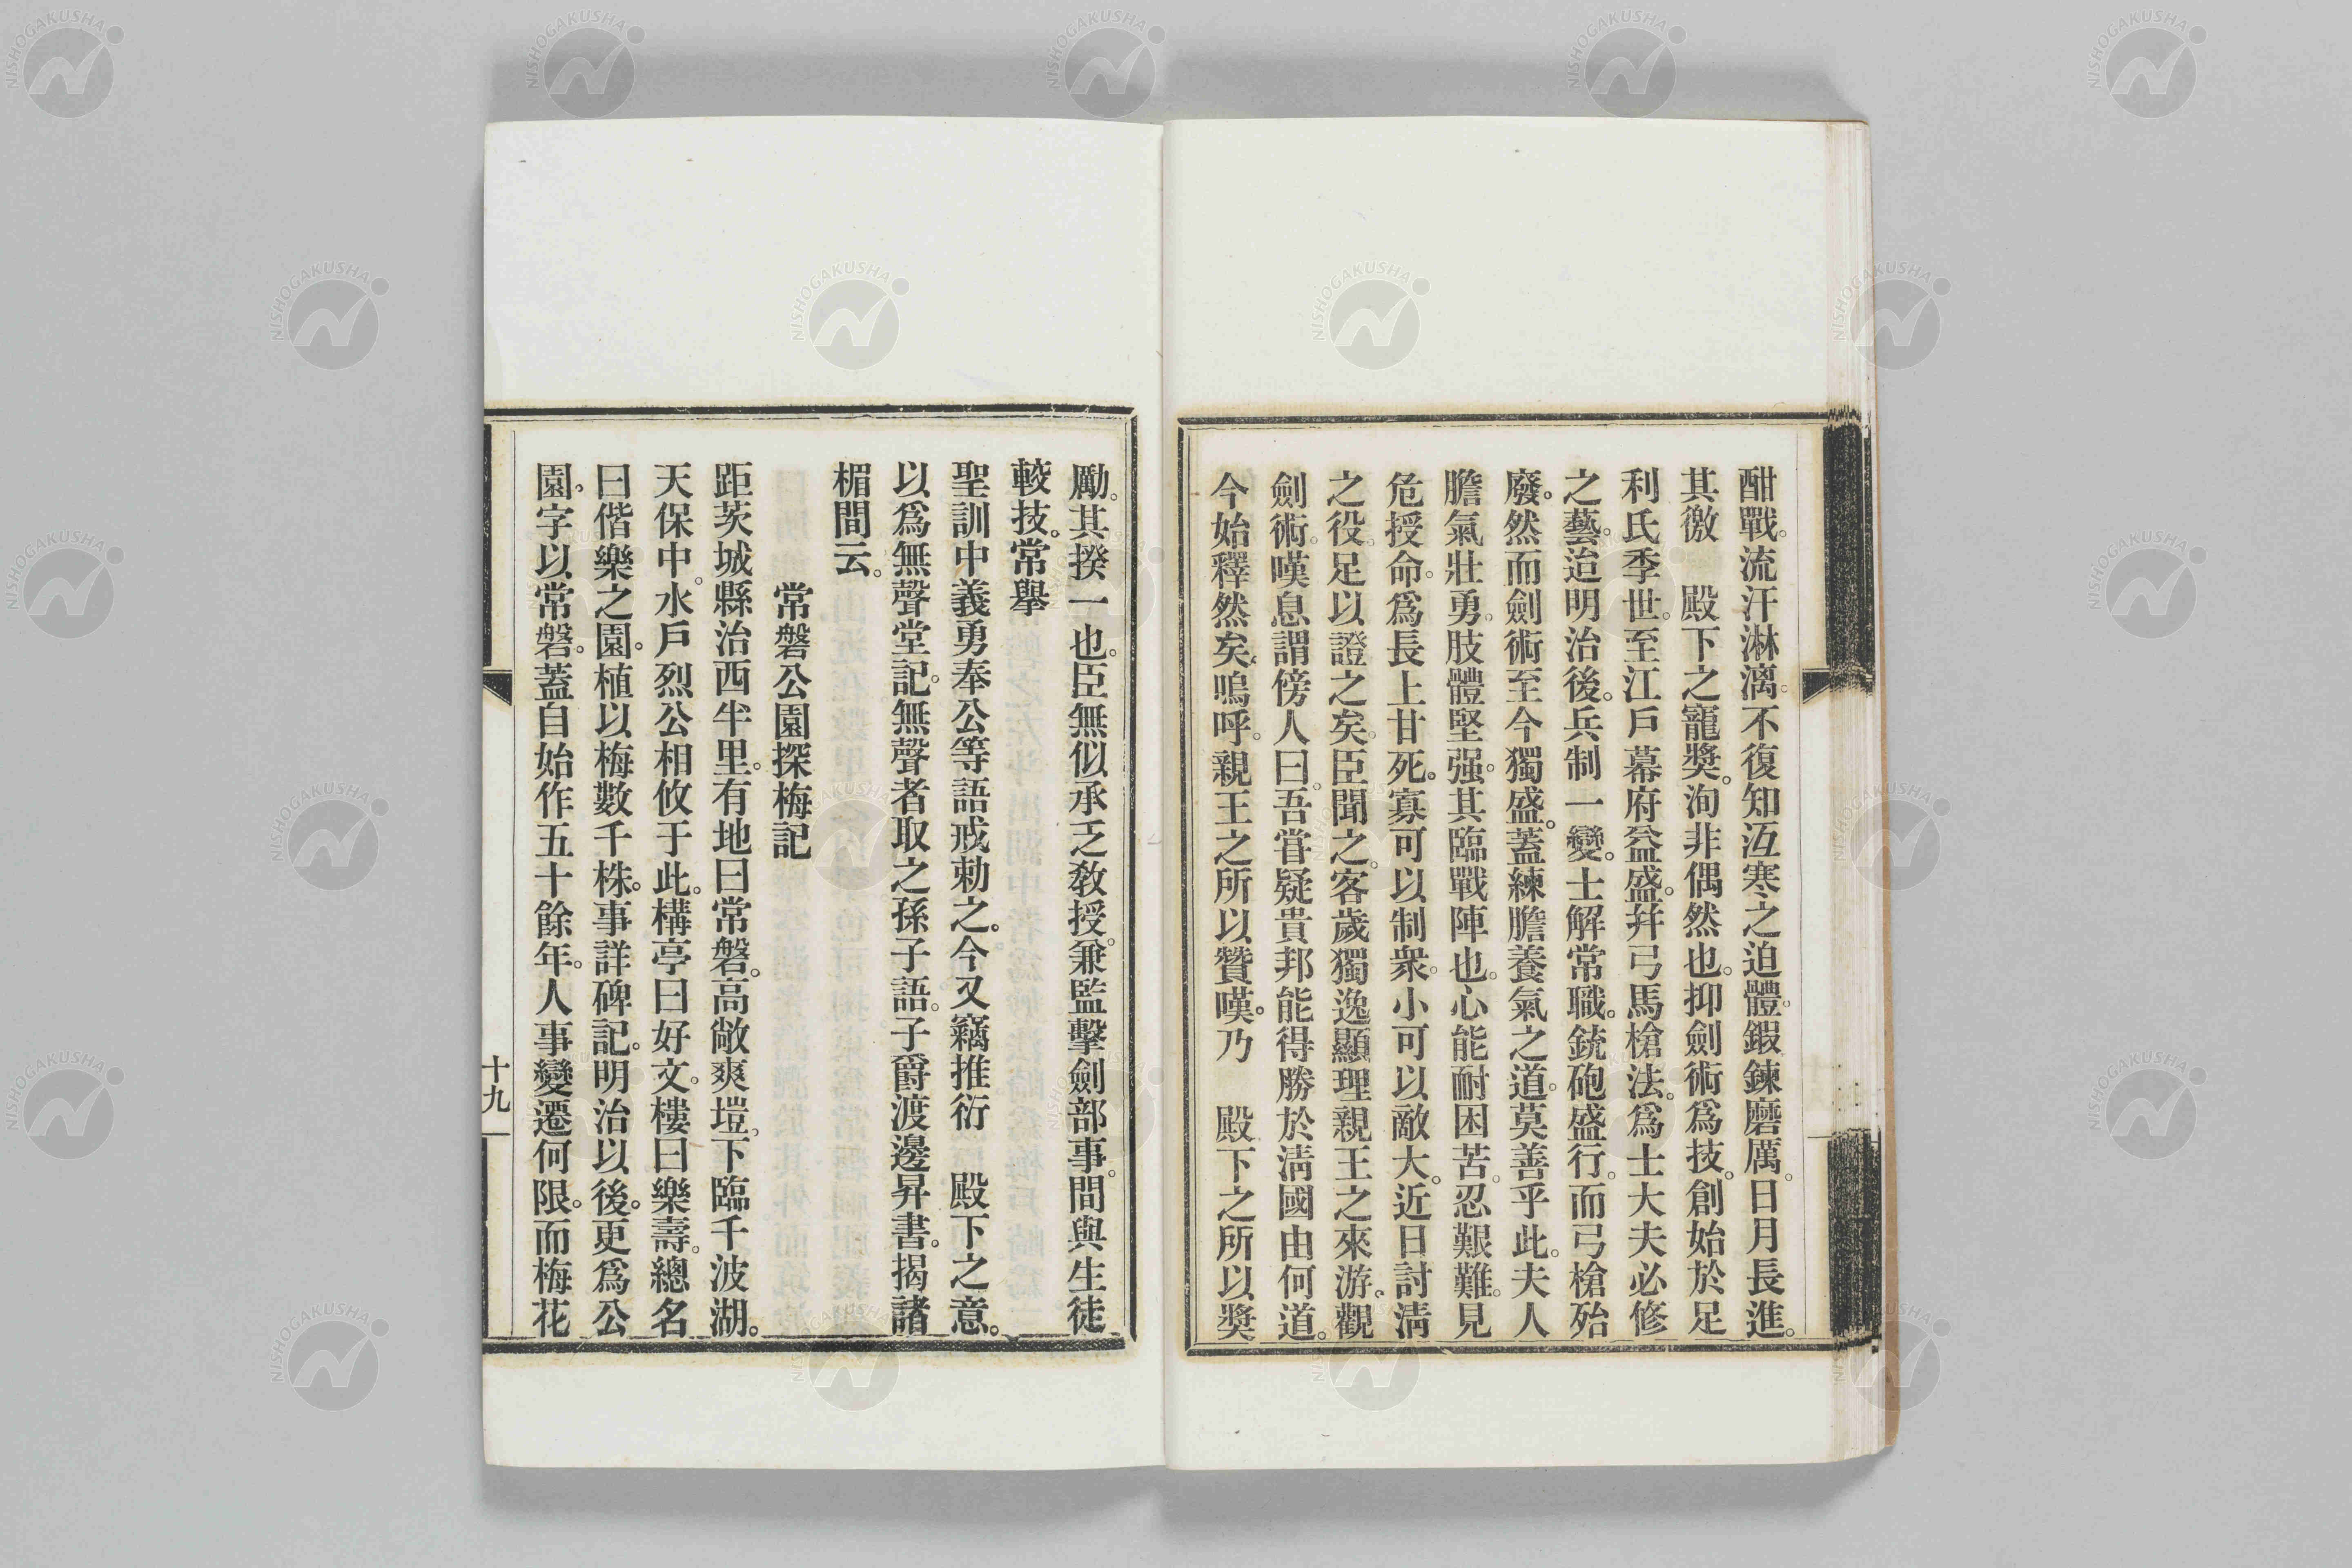 酣戰。流汗淋漓。不復知沍寒之迫體。鍜鍊磨厲。日月長進。
其徼　殿下之寵獎。洵非偶然也。抑劍術爲技。創始於足
利氏季世。至江戶幕府益盛。幷弓馬槍法。爲士大夫必修
之藝。迨明治後。兵制一變。士解常職。銃砲盛行。而弓槍殆
廢。然而劍術至今獨盛。蓋練膽養氣之道。莫善乎此。夫人
膽氣壯勇。肢體堅强。其臨戰陣也。心能耐困苦。忍艱難。見
危授命。爲長上甘死。寡可以制衆。小可以敵大。近日討淸
之役。足以證之矣。臣聞之。客歲獨逸顯理親王之來游。觀
劍術。嘆息謂傍人曰。吾嘗疑貴邦能得勝於淸國由何道。
今始釋然矣。嗚呼。親王之所以贊嘆。乃　殿下之所以奬
勵。其揆一也。臣無似承乏敎授。兼監擊劍部事。間與生徒
較技。常擧
聖訓中義勇奉公等語戒勅之。今又竊推衍　殿下之意。
以爲無聲堂記。無聲者取之孫子語。子爵渡邊昇書。揭諸
楣間云。
常磐公園探梅記
距茨城縣治西半里。有地曰常磐。高敞爽塏。下臨千波湖。
天保中。水戶烈公相攸于此。構亭曰好文。樓曰樂壽。總名
曰偕樂之園。植以梅數千株。事詳碑記。明治以後。更爲公
園。字以常磐。蓋自始作五十餘年。人事變遷何限。而梅花
十九
NISHOGAKUSHA